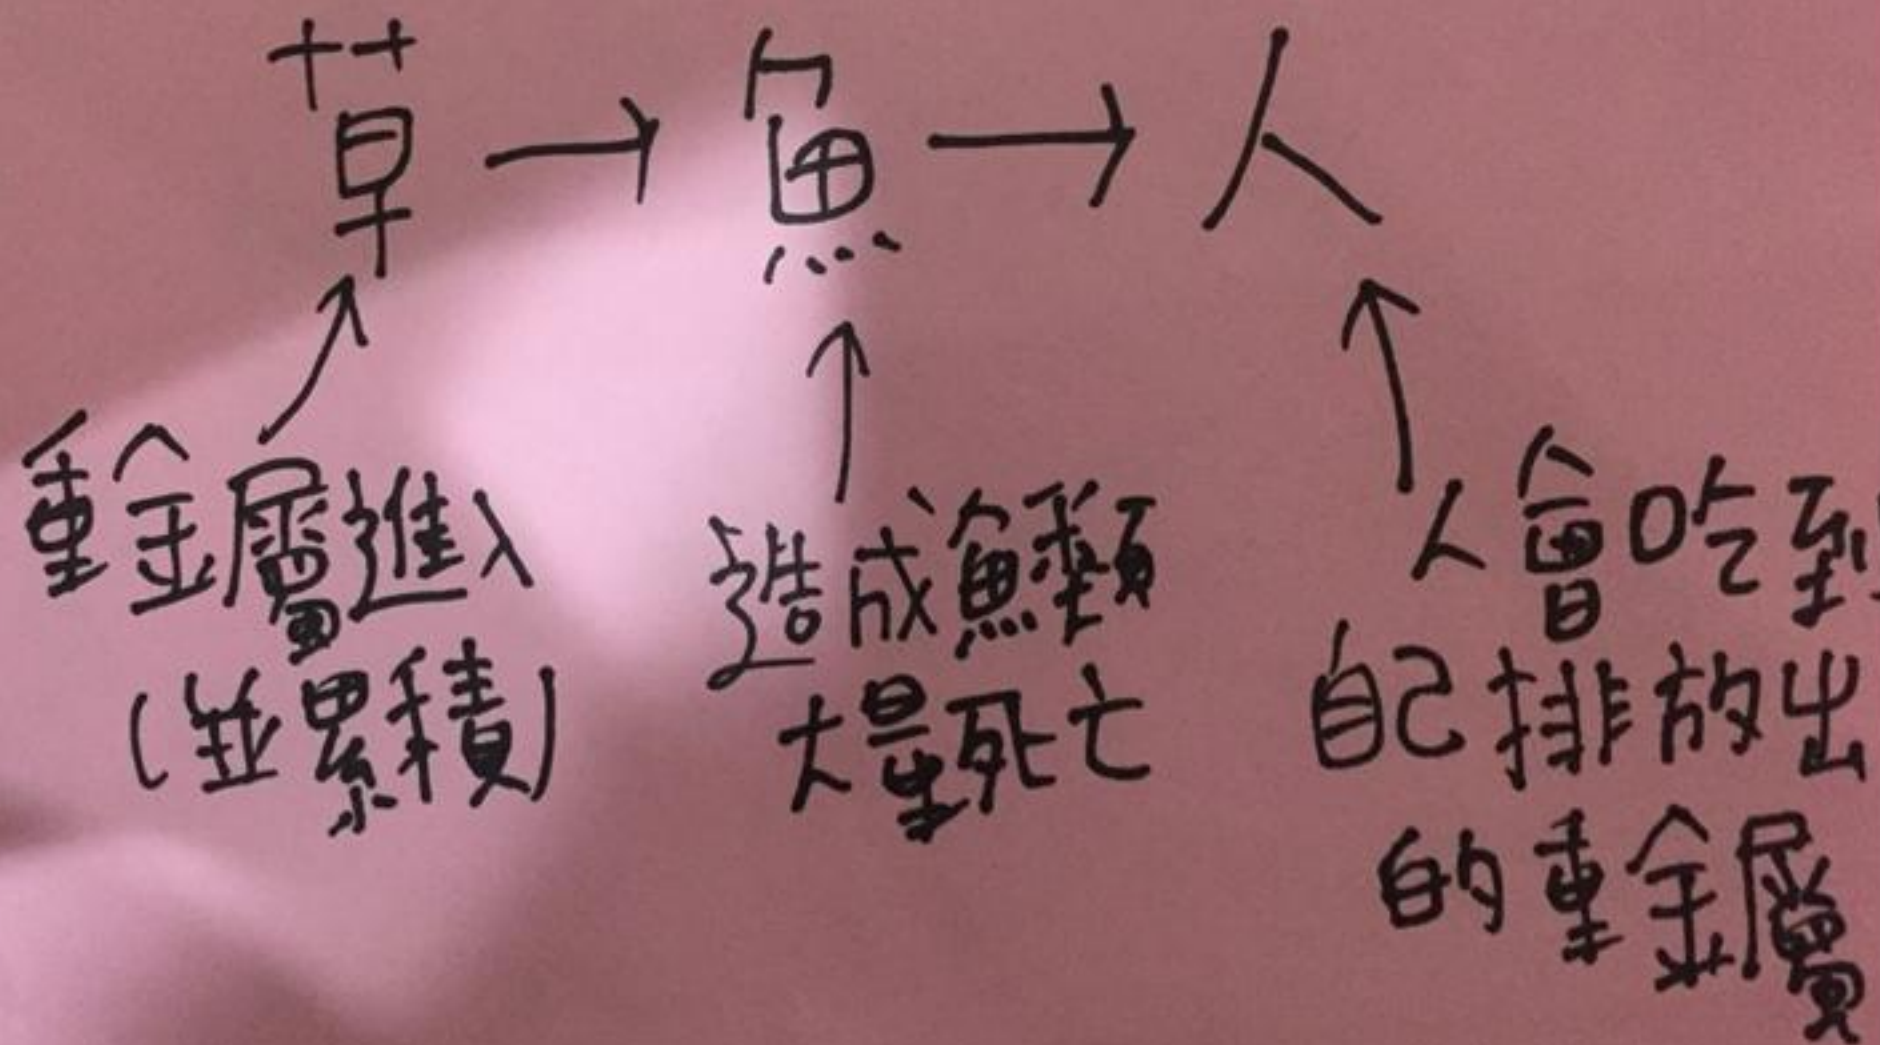 草→魚→人
重金屬進入
(並累積)
造成魚類
大量死亡
人會吃到
自己排放出
的重金屬